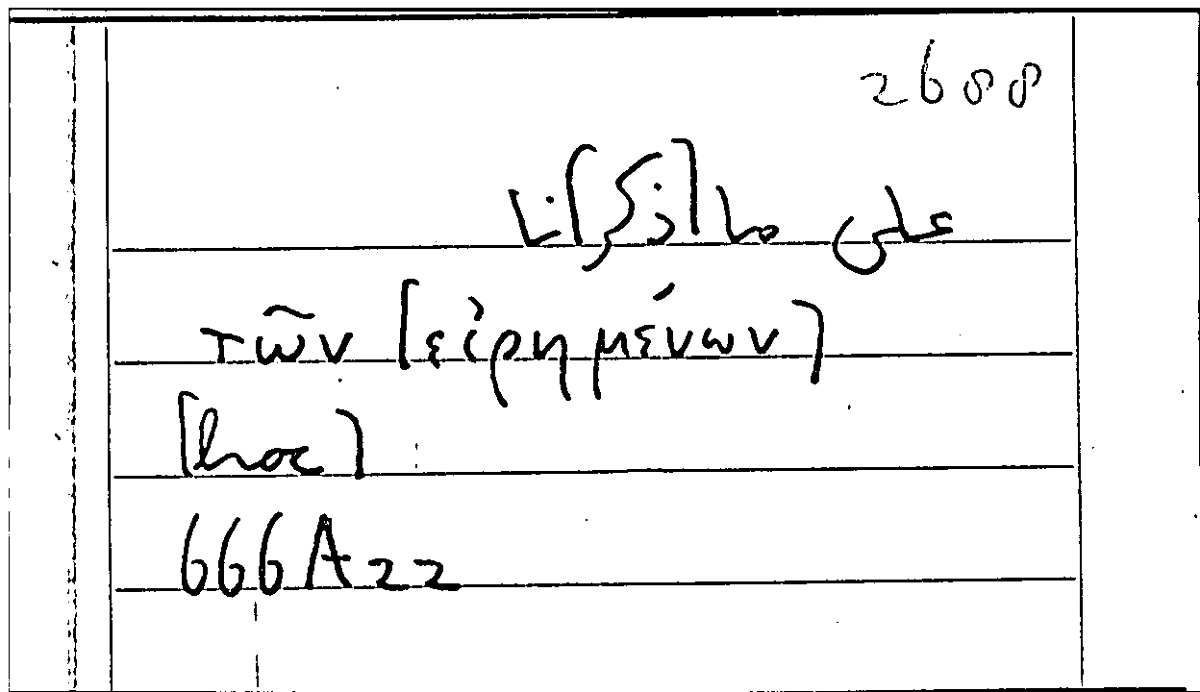 2688
على ما [ذكر]نا
τῶν [εἰρημένων]
[hoc]
666A22